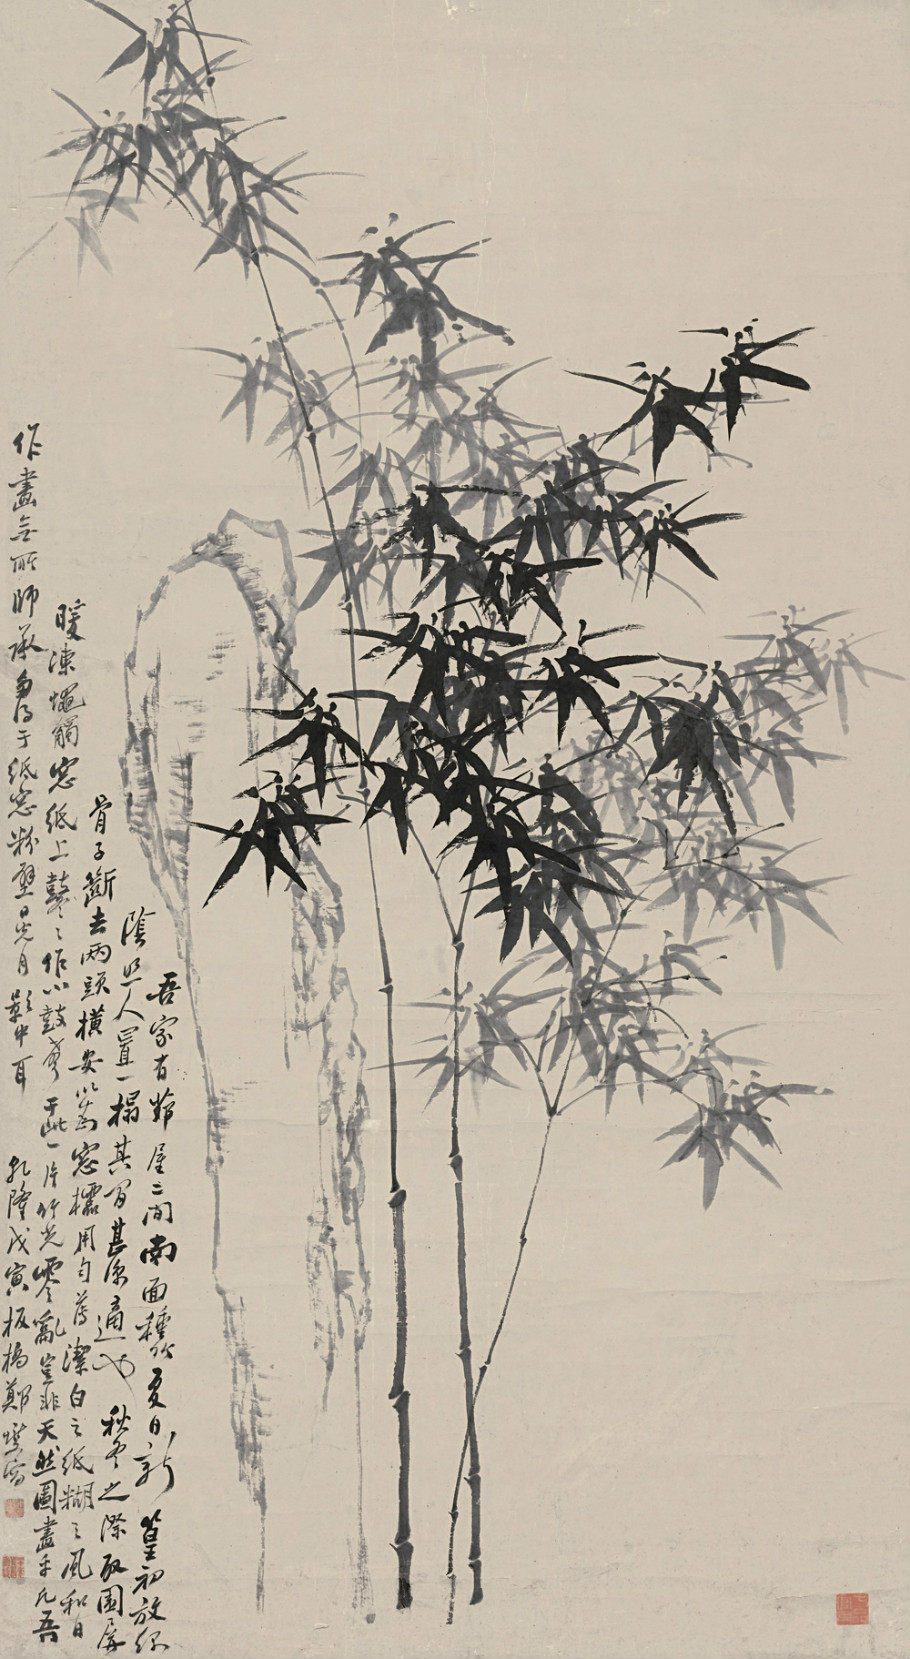 吾家有茆屋二间南面種竹夏日新篁初放綠
陰照人置一榻其間甚凉適也秋冬之際取圍屏
骨子斷去兩頭橫安以為窓櫺用勻薄潔白之紙糊之風和日
暖凍蠅觸窓紙上鼕〻作小鼓聲于此一片竹光零亂豈非天然圖畫乎凡吾
作畫無所師承多得于紙窓粉壁日光月影中耳 乾隆戊寅板橋鄭燮寫